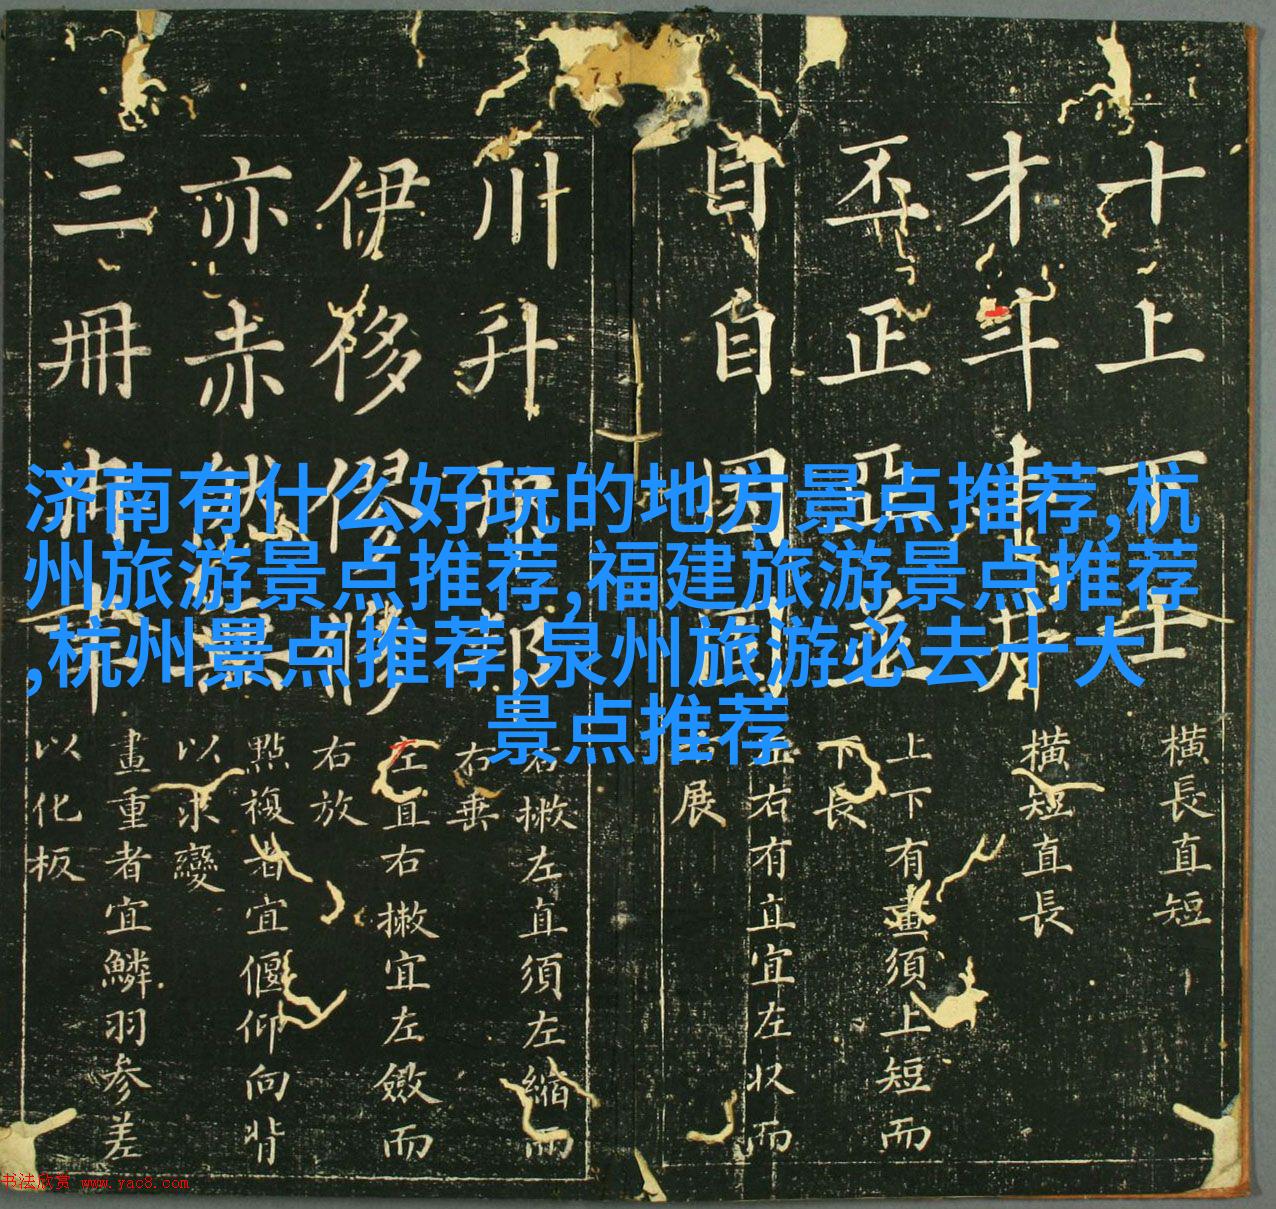 济南有什么好玩的地方景点推荐,杭
州旅游景点推荐,福建旅游景点推荐
,杭州景点推荐,泉州旅游必去十大
景点推荐
十上下士
橫長直短
才斗
橫短直長
丕正
上下有畫須上短而
下長
目自因
右有直宜左收而
展
川升
右撇左直須左縮而
右垂
伊侈
左直右撇宜左斂而
右放
亦赤
點複者宜偃仰向背
以求變
三冊
畫重者宜鱗羽參差
以化板
书法欣赏 www.yac8.com